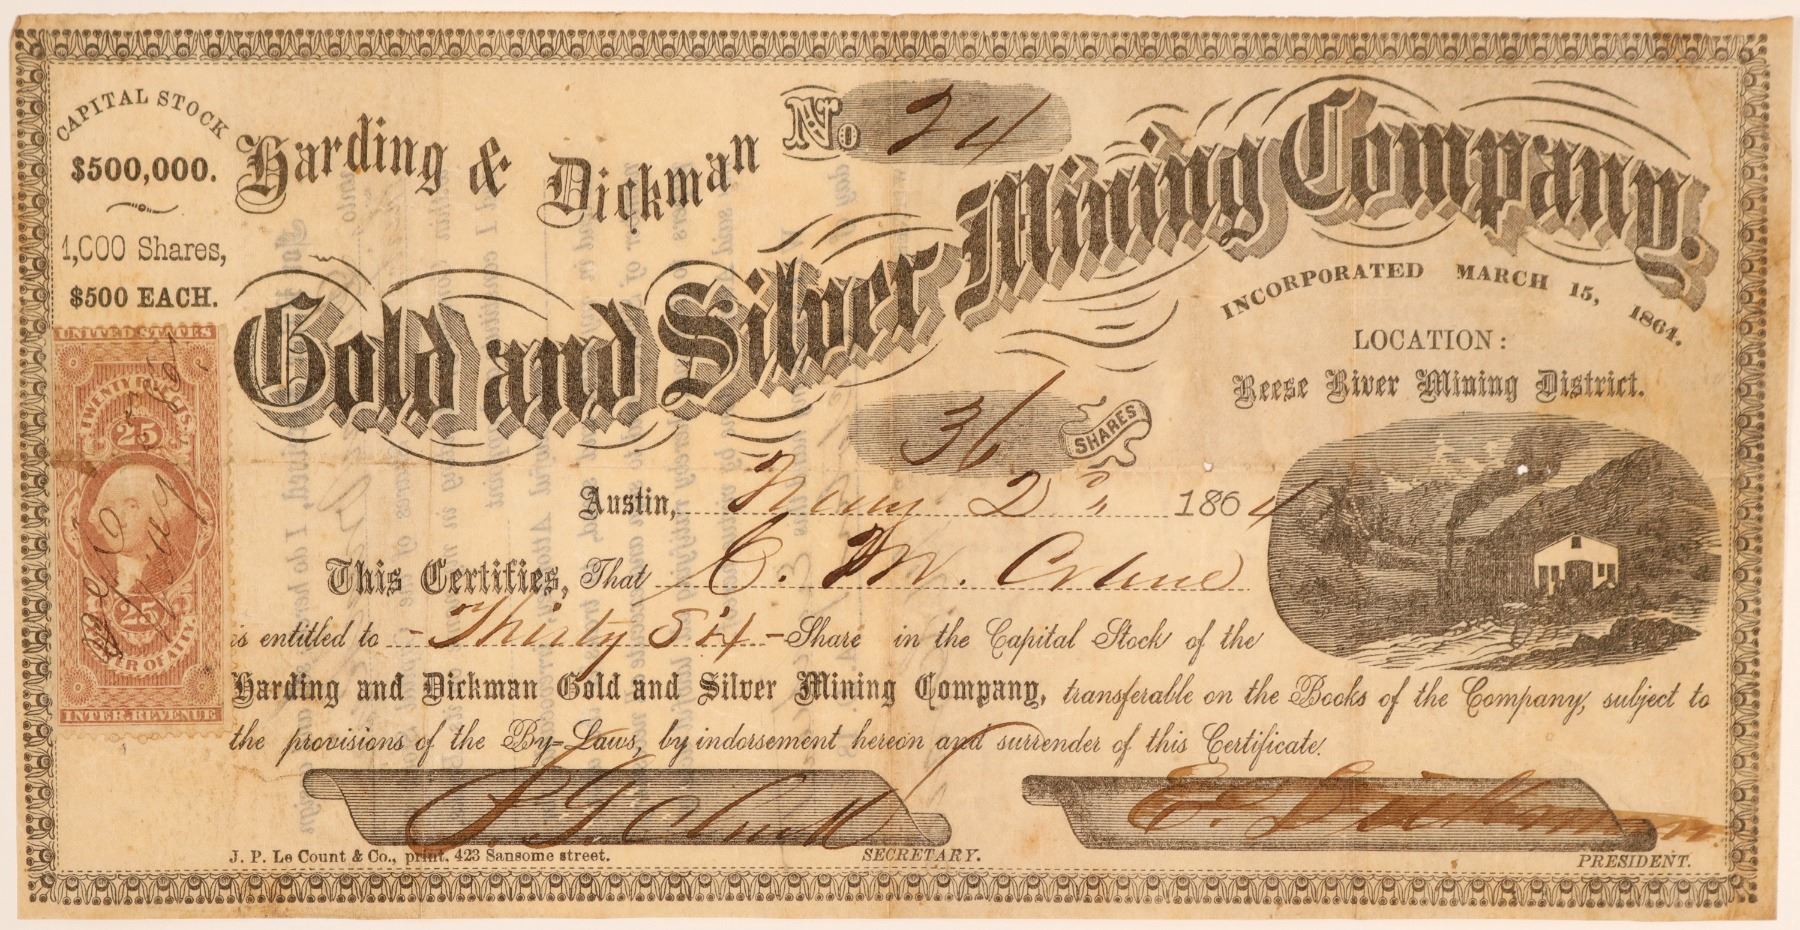 CAPITAL STOCK
$500,000.
1,000 Shares,
$500 EACH.
No 24
Harding & Dickman
Gold and Silver Mining Company.
INCORPORATED MARCH 15, 1864.
LOCATION:
Reese River Mining District.
36 SHARES
Austin, 2d 1864
This Certifies, That C. M. Crane
is entitled to - Thirty Six - Share in the Capital Stock of the
Harding and Dickman Gold and Silver Mining Company, transferable on the Books of the Company, subject to
the provisions of the By-Laws, by indorsement hereon and surrender of this Certificate.
E. Dickman
J. P. Le Count & Co., print. 423 Sansome street.
SECRETARY.
PRESIDENT.
UNITED STATES
TWENTY FIVE CTS.
25
25
POWER OF ATTY.
INTER. REVENUE